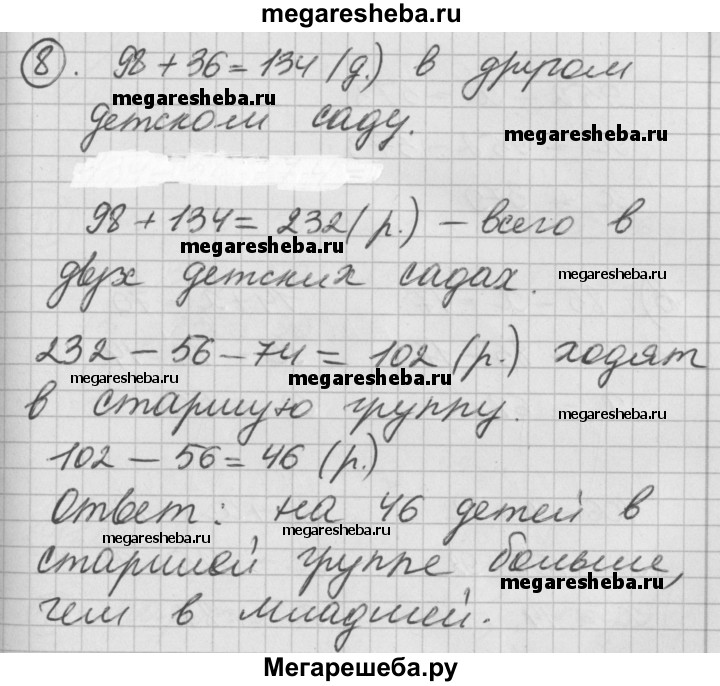 megaresheba.ru
8. 98 + 36 = 134 (д.) в другом
megaresheba.ru
megaresheba.ru
детском саду.
98 + 134 = 232 (р.) – всего в
megaresheba.ru
двух детских садах.
megaresheba.ru
232 – 56 – 74 = 102 (р.) ходят
megaresheba.ru
megaresheba.ru
в старшую группу.
megaresheba.ru
102 – 56 = 46 (р.)
Ответ: на 46 детей в
megaresheba.ru
megaresheba.ru
старшей группе больше,
megaresheba.ru
чем в младшей.
Мегарешеба.ру